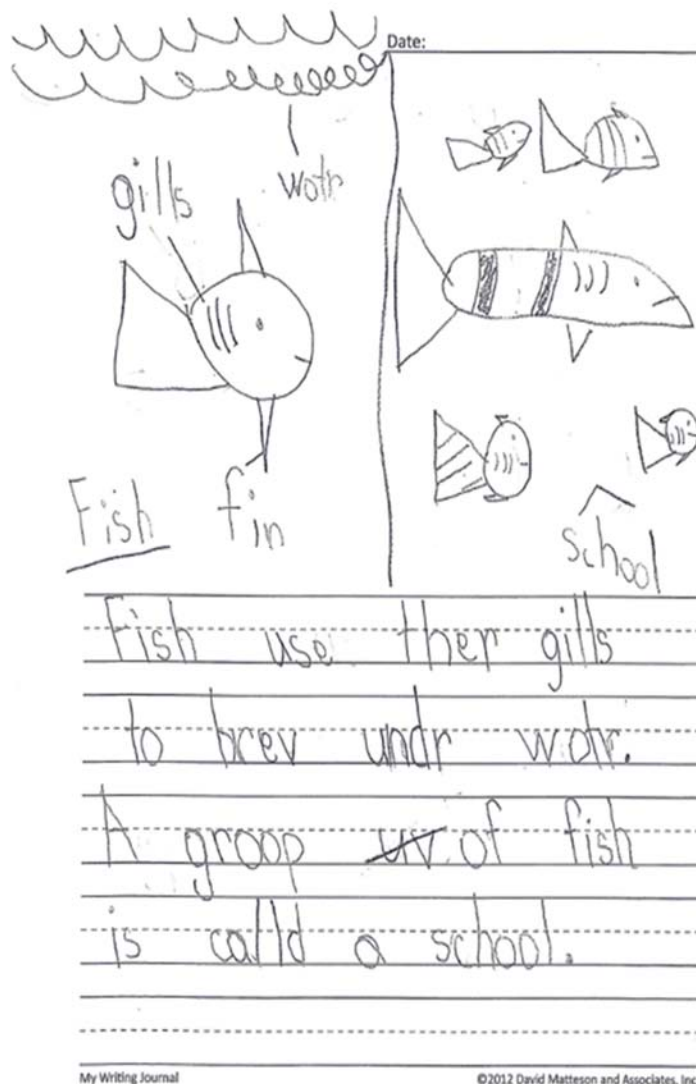 Date:
wotr
gills
Fish
fin
school
Fish use ther gills
to brev undr wotr.
A groop uv of fish
is calld a school.
My Writing Journal
©2012 David Matteson and Associates, Inc